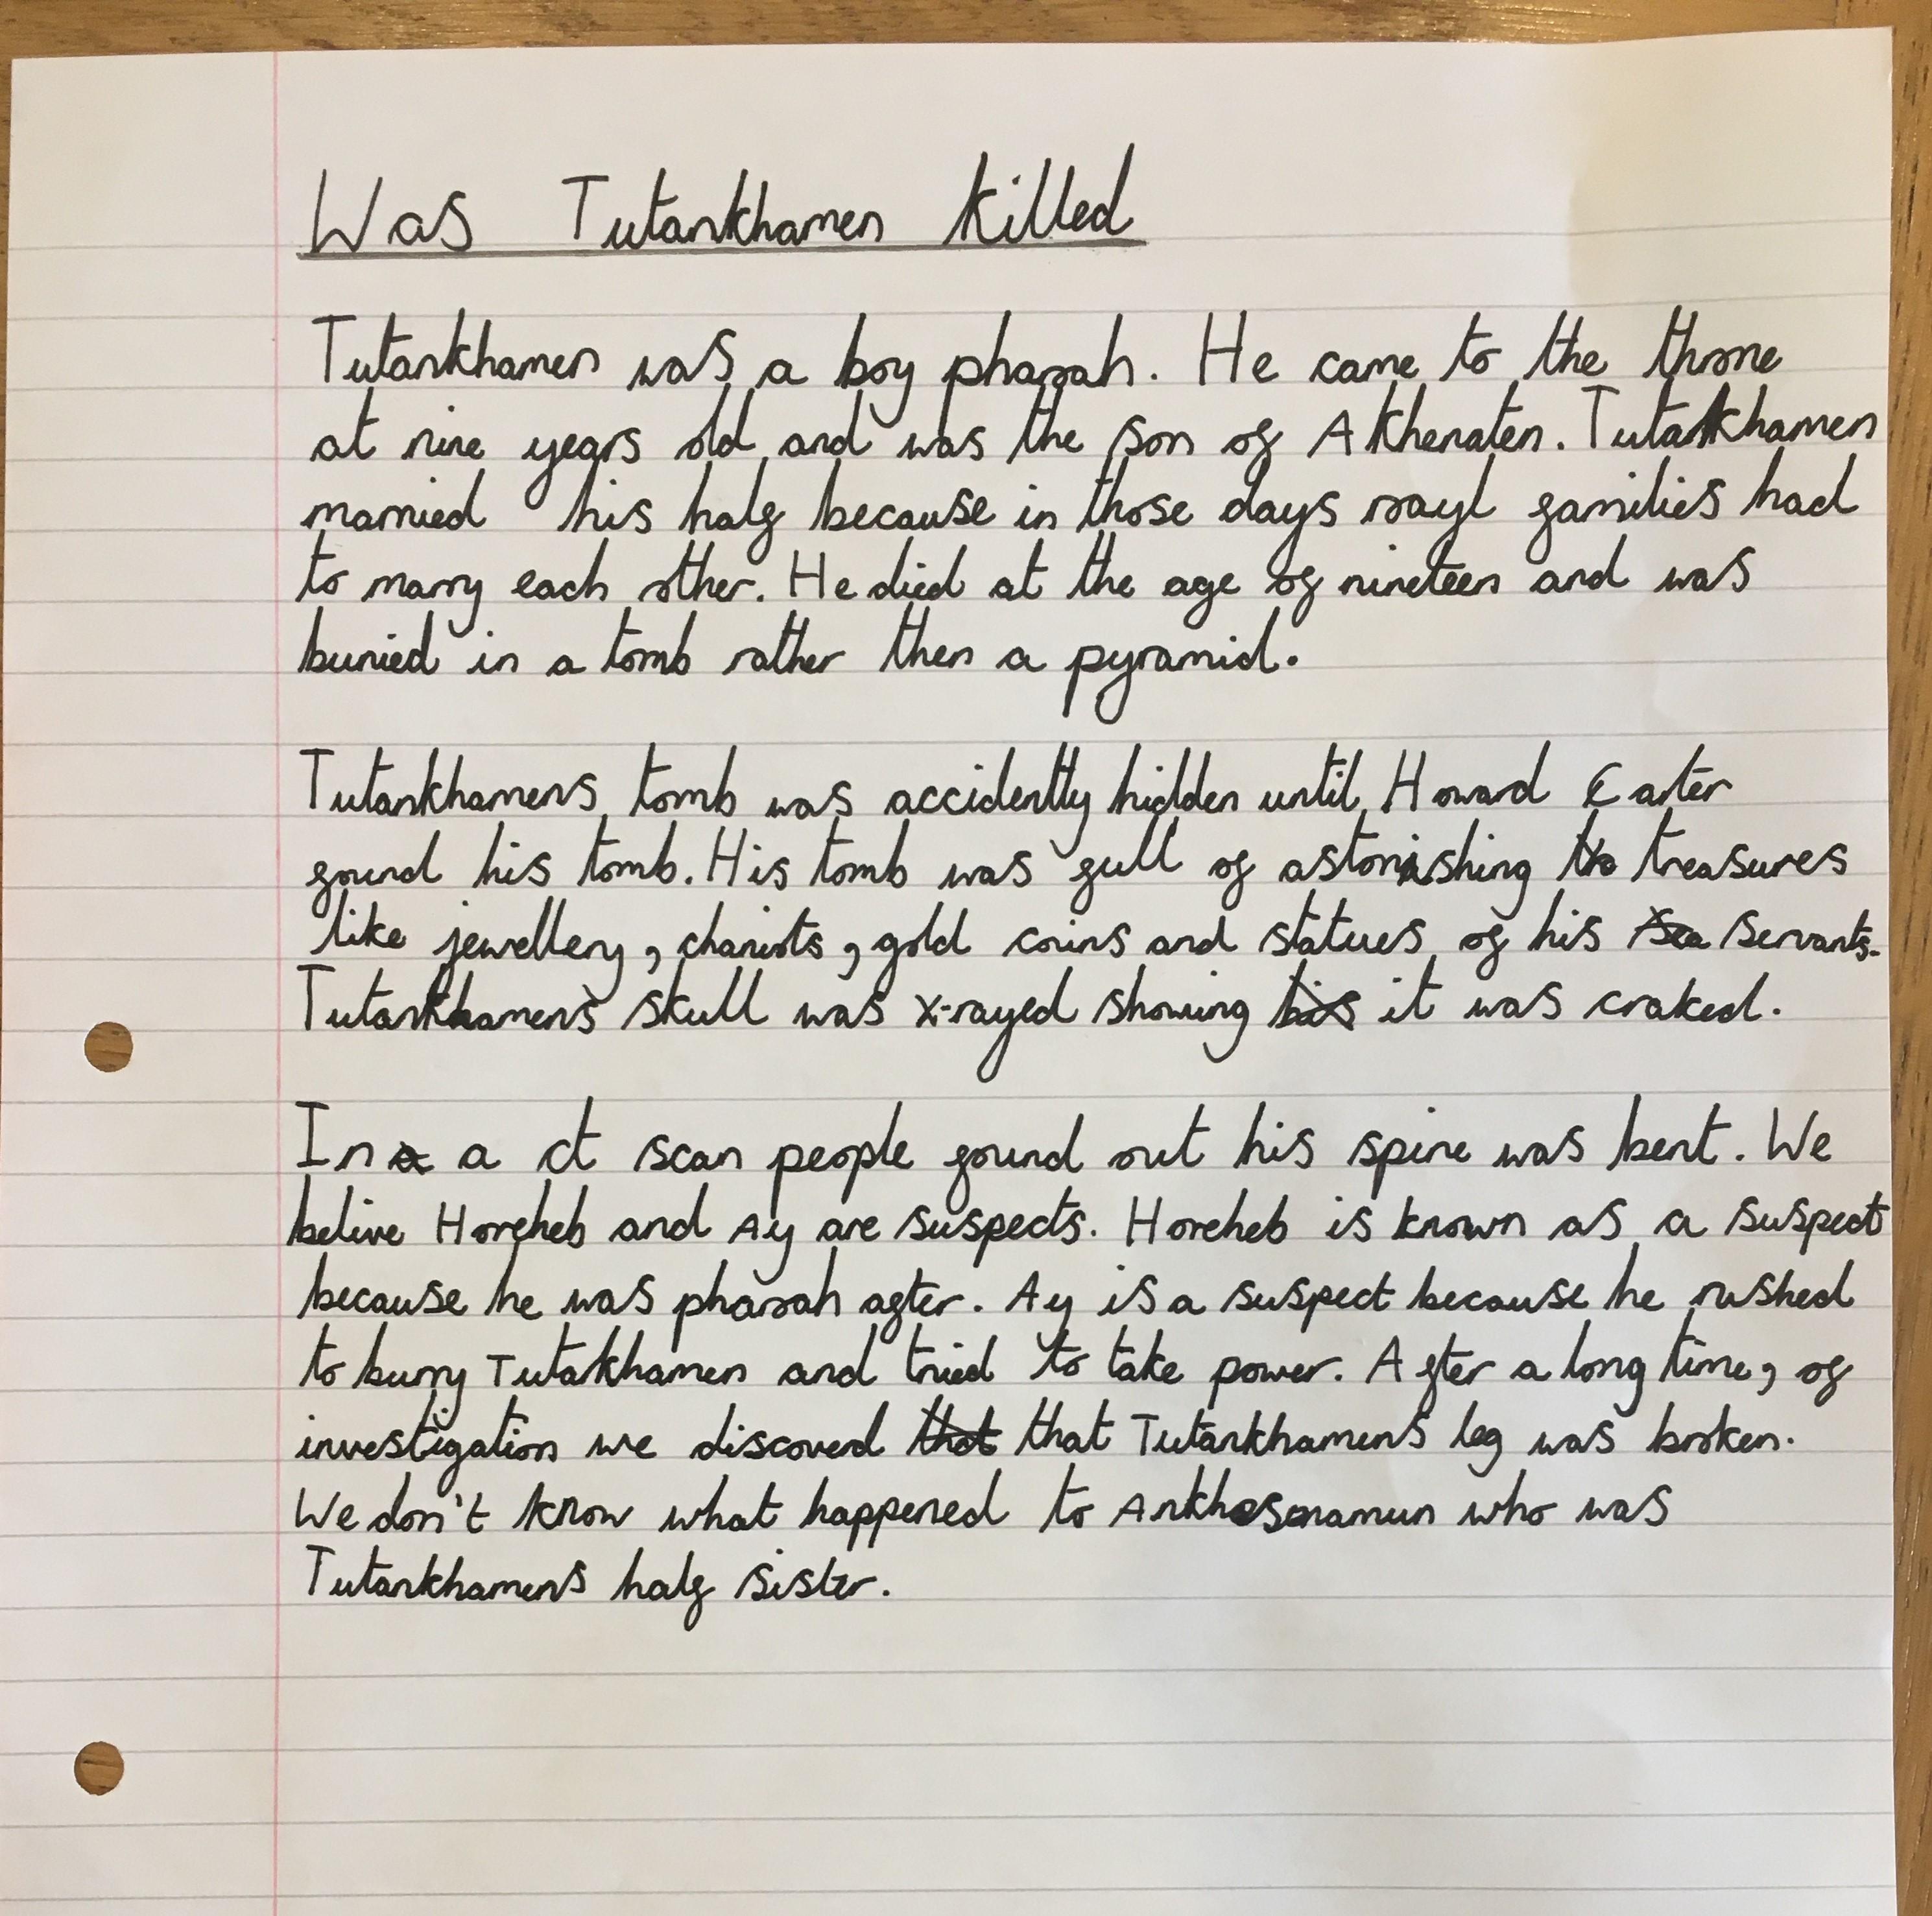 Was Tutankhamen killed
Tutankhamen was a boy pharoah. He came to the throne
at nine years old and was the son of Akhenaten. Tutankhamen
married his half because in those days roayl families had
to marry each other. He died at the age of nineteen and was
buried in a tomb rather then a pyramid.
Tutankhamens tomb was accidently hidden until Howard Carter
found his tomb. His tomb was full of astonishing treasures
like jewellery, chariots, gold coins and statues of his servants.
Tutankhamen's skull was x-rayed showing it was craked.
In a ct scan people found out his spine was bent. We
belive Horeheb and Ay are suspects. Horeheb is known as a suspect
because he was pharoah after. Ay is a suspect because he rushed
to burry Tutakhamen and tried to take power. After a long time, of
investigation we discoverd that Tutankhamens leg was broken.
We don't know what happened to Ankhesenamun who was
Tutankhamens half sister.